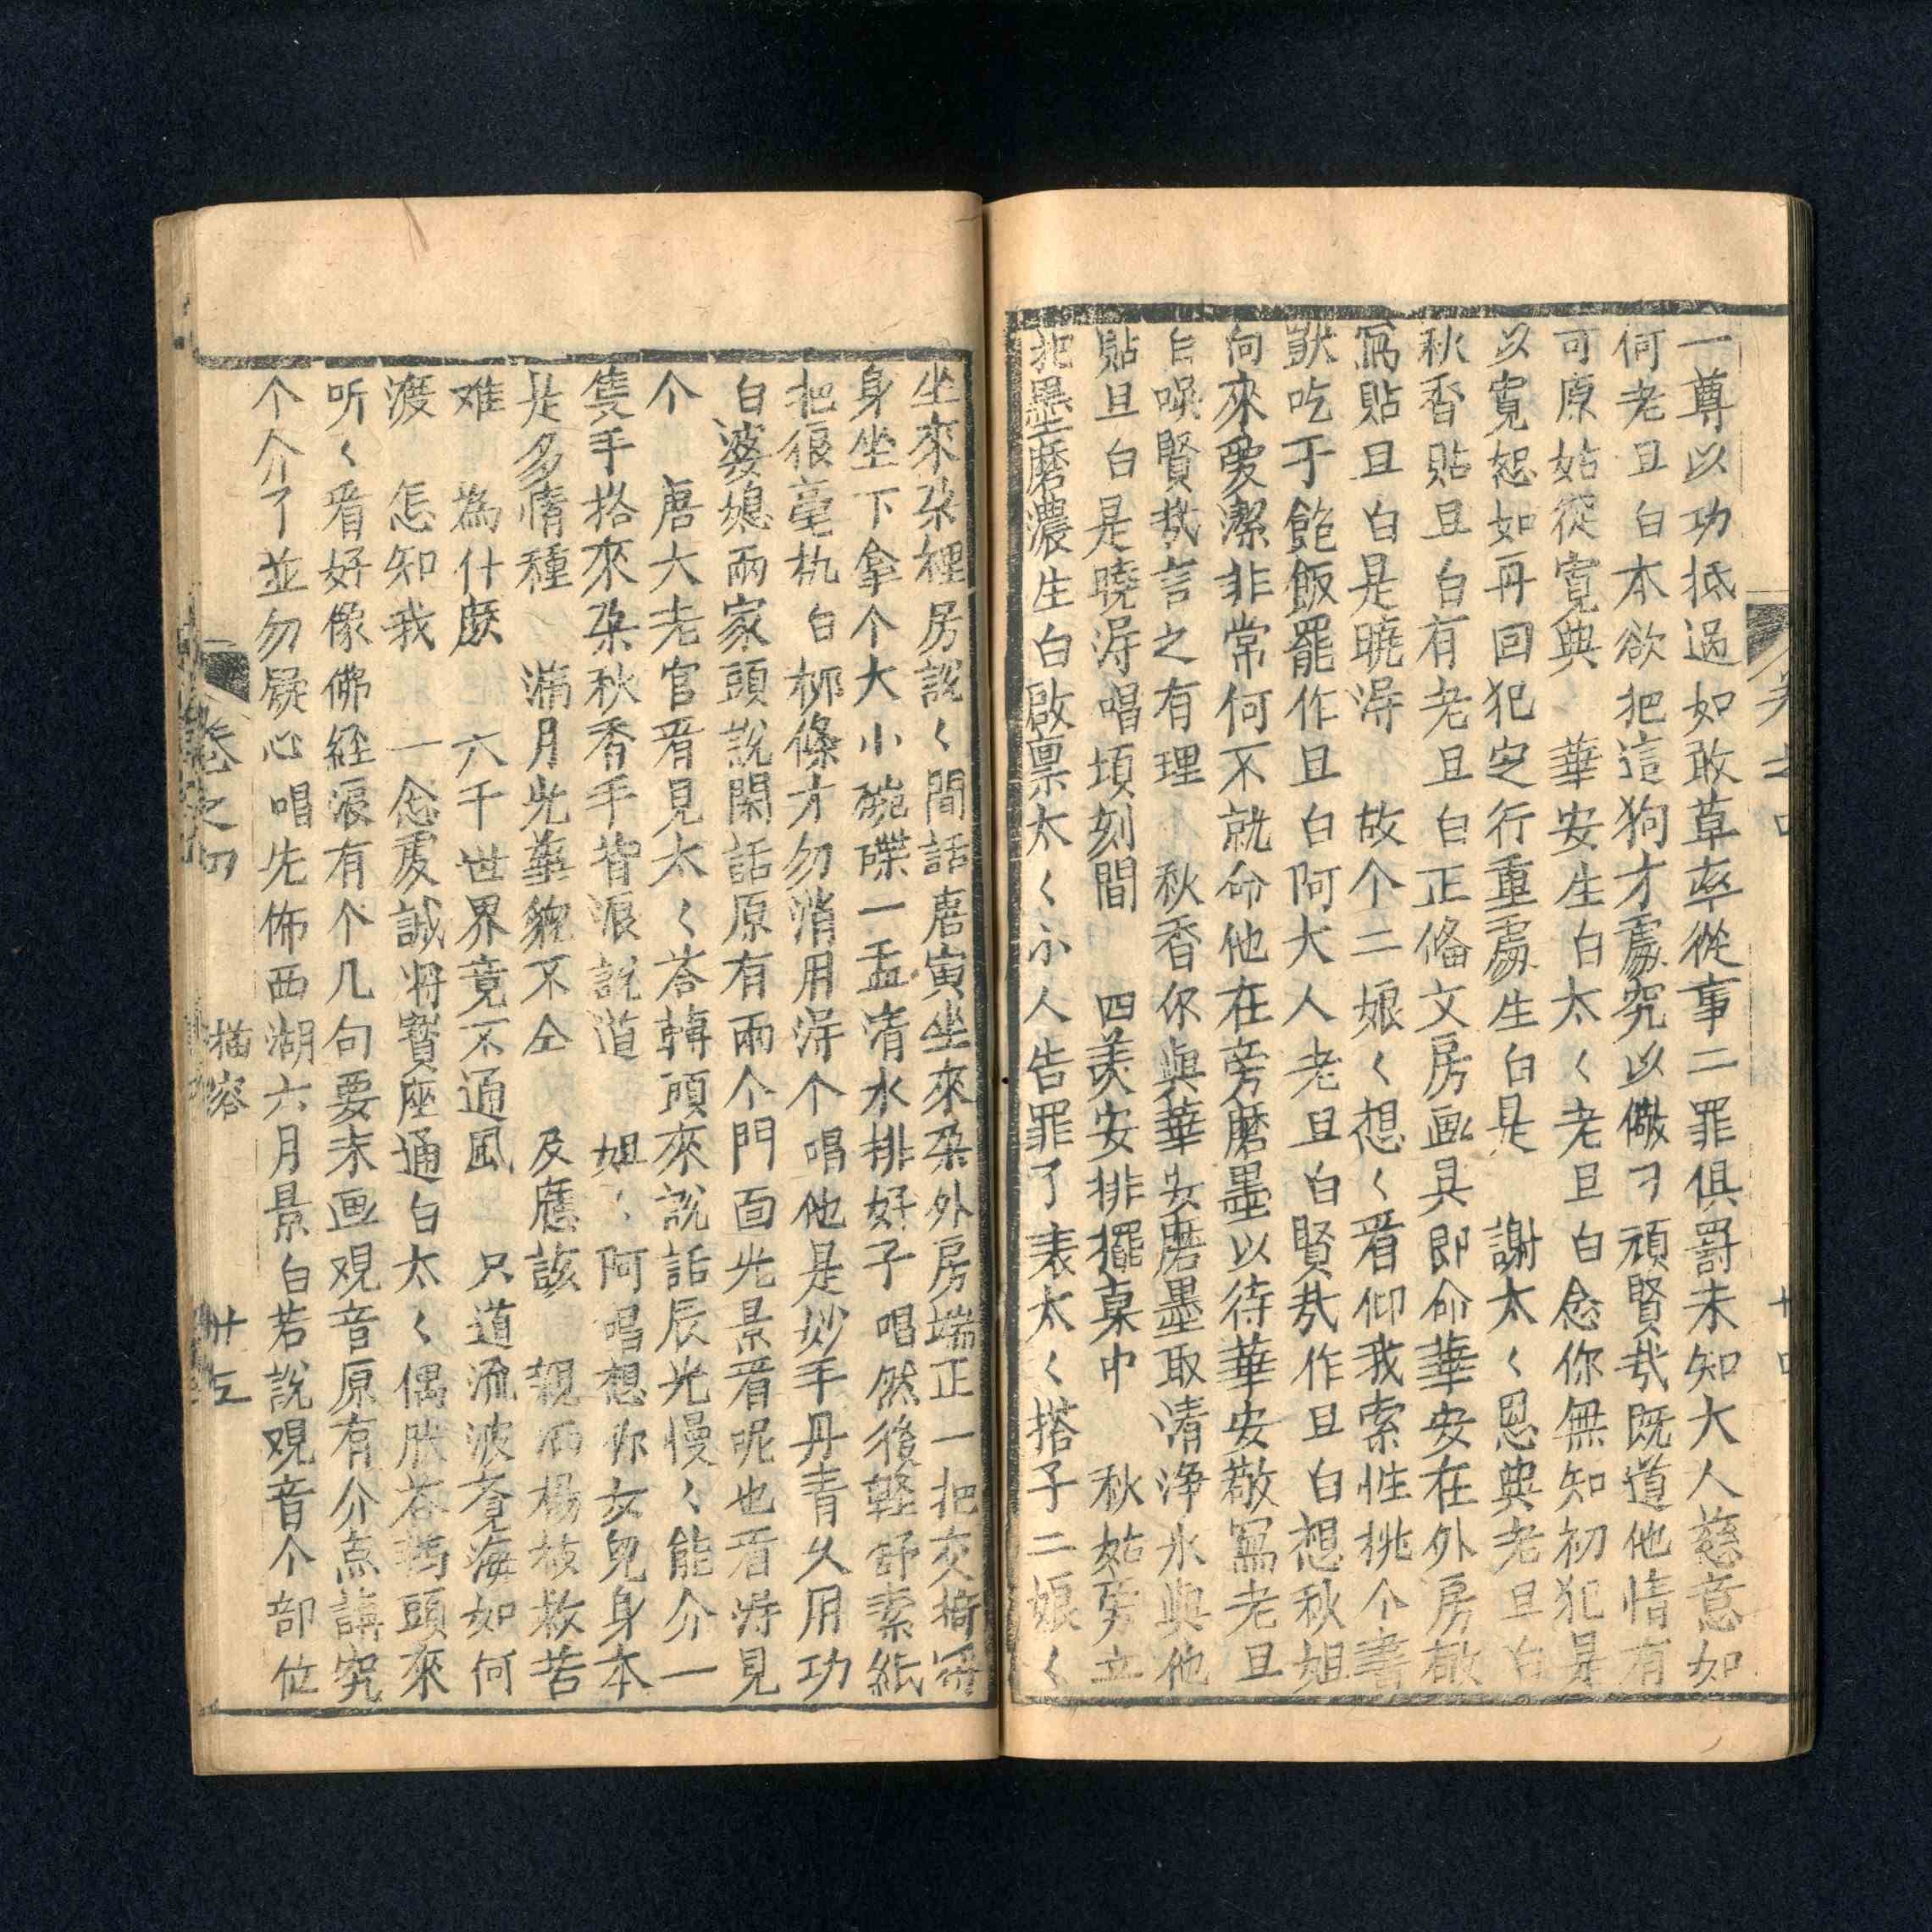 一尊以功抵過如敢草率從事二罪俱罰未知大人慈意如
何老旦白本欲把這狗才處究以儆刁頑賢哉既道他情有
可原姑從寬典　華安生白太く老旦白念你無知初犯是
以寬恕如再回犯定行重處生白是　謝太く恩典老旦白
秋香貼旦白有老旦白正偹文房画具即命華安在外房敬
寫貼旦白是曉淂　故个二娘く想く看仰我索性挑个書
獃吃于飽飯罷作旦白阿大人老旦白賢哉作旦白想秋姐
向來愛潔非常何不就命他在旁磨墨以待華安敬寫老旦
白噢賢哉言之有理　秋香你與華安磨墨取清淨水與他
貼旦白是曉淂唱頃刻間　四美安排擺棹中　秋姑旁立
把墨磨濃生白啟禀太く小人告罪了表太く搭子二娘く
坐來朶裡房説く間話唐寅坐來朶外房端正一把交椅
身坐下拿个大小碗碟一盂清水排好子唱然後輕舒素紙
把很毫执白栁條才勿消用淂个唱他是妙手丹青久用功
白婆媳兩家頭説閑話原有兩个門面光景看昵也看淂見
个　唐大老官看見太く荅轉頭來説話辰光慢く能介一
隻手搭來朶秋香手背浪説道　姐〻阿唱想你女兒身本
是多情種　滿月光華貌不仝　及應該　親洒楊枝救苦
难　為什麽　六千世界竟不通風　只道流波蒼海如何
渡　怎知我　一念虔誠將寳座通白太く偶肰荅轉頭來
听く看好像佛經浪有个几句要末画观音原有介点講究
个介了並勿疑心唱先佈西湖六月景白若説观音个部位
卷之四　描容　廿五